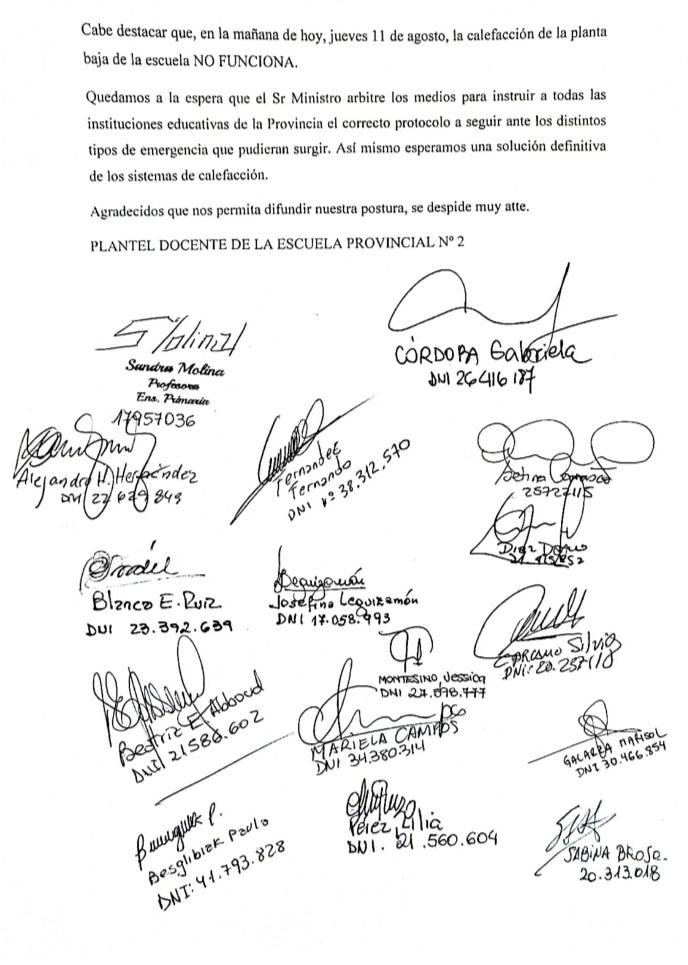 Cabe destacar que, en la mañana de hoy, jueves 11 de agosto, la calefacción de la planta
baja de la escuela NO FUNCIONA.
Quedamos a la espera que el Sr Ministro arbitre los medios para instruir a todas las
instituciones educativas de la Provincia el correcto protocolo a seguir ante los distintos
tipos de emergencia que pudieran surgir. Así mismo esperamos una solución definitiva
de los sistemas de calefacción.
Agradecidos que nos permita difundir nuestra postura, se despide muy atte.
PLANTEL DOCENTE DE LA ESCUELA PROVINCIAL Nº 2
S Molina
Sandra Molina
Profesora
Ens. Primaria
17957036
CÓRDOBA Gabriela
DNI 26416187
Alejandro H. Hernández
DNI 22 629 849
Fernandez
Fernando
DNI Nº 38.312.570
25727115
Diaz
Blanca E. Ruiz
DUI 23.392.639
Leguizamón
Josefina Leguizamón
DNI 17.058.993
MONTESINO, Jessica
DNI
Silvia
DNI: 20.257118
Beatriz E. Abboud
DNI 21588.602
MARIELA CAMPOS
DNI 34.380.314
GALARZA MARISOL
DNI 30.466.854
Besglibiak Paulo
DNI: 41.793.828
Pérez Lilia
DNI. 21.560.604
SABINA BROSO.
20.313.018